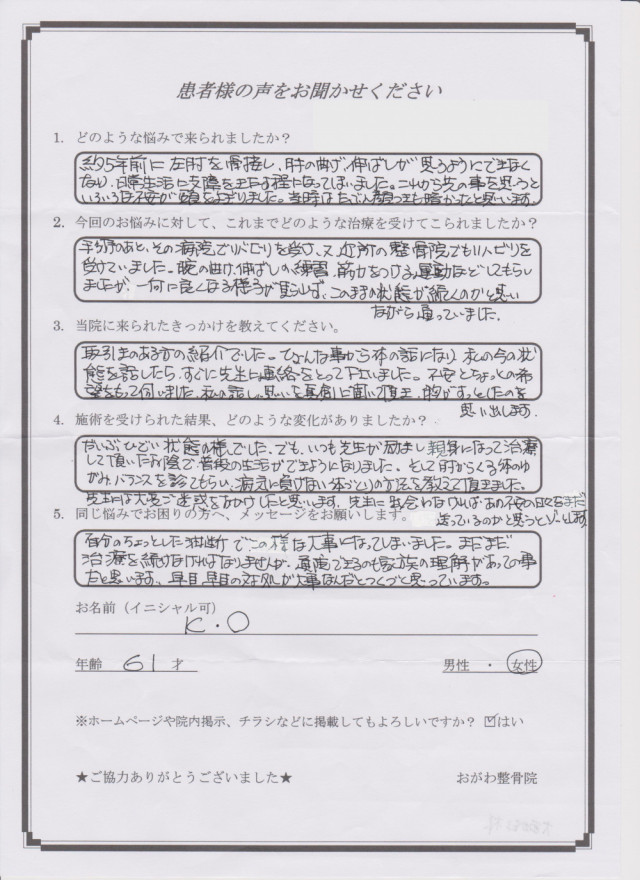 患者様の声をお聞かせください
1. どのような悩みで来られましたか？
約5年前に左肘を骨接し、肘の曲げ伸ばしが思うようにできなく
なり、日常生活に支障をきたす程になってしまいました。これから先の事を思うと
いろいろな不安が頭をよぎりました。当時はたぶん顔つきも暗かったと思います。
2. 今回のお悩みに対して、これまでどのような治療を受けてこられましたか？
手術のあと、その病院でリハビリを受け、又、近所の整骨院でもリハビリを
受けていました。腕の曲げ、伸ばしの練習、筋力をつける運動などしてもらい
ましたが、一向に良くなる様子が見られず、このままの状態が続くのかと思い
ながら通っていました。
3. 当院に来られたきっかけを教えてください。
取引先のある方の紹介でした。ひょんな事から体の話になり、私の今の状
態を話したら、すぐに先生に連絡をとって下さいました。不安とちょっとの希
望をもって伺いました。私の話し、思いを真剣に聞いて頂き、胸がすっとしたのを
思い出します。
4. 施術を受けられた結果、どのような変化がありましたか？
だいぶひどい状態の様でした。でも、いつも先生が励まし親身になって治療
して頂いたお陰で普段の生活ができようになりました。そして肘からくる体のゆ
がみ、バランスを診てもらい、病気に負けない体づくりの方法を教えて頂きました。
先生には大変ご迷惑をおかけしたと思います。先生に出会わなければ、あの不安の日々をまだ
送っているのかと思うとゾーとします。
5. 同じ悩みでお困りの方へ、メッセージをお願いします。
自分のちょっとした油断でこの様な大事になってしまいました。まだまだ
治療を続けなければなりませんが、通院できるのも家族の理解があっての事
だと思います。早目、早目の対処が大事なんだとつくづく思っています。
お名前（イニシャル可）
K・O
年齢 61 才 男性 ・ 女性
※ホームページや院内掲示、チラシなどに掲載してもよろしいですか？ ☑はい
★ご協力ありがとうございました★ おがわ整骨院